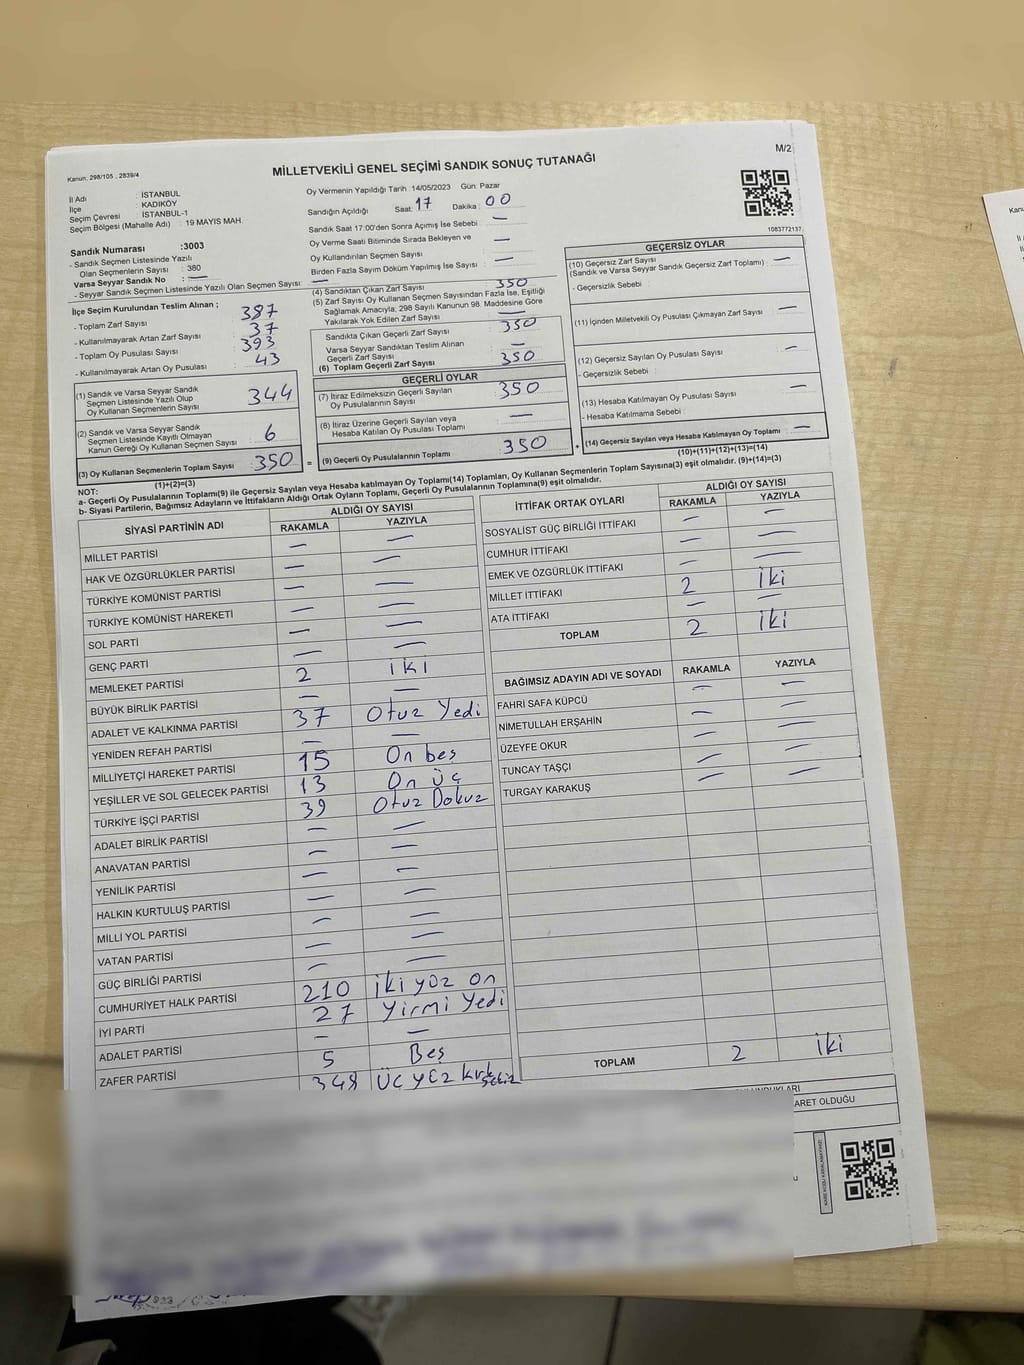 Kanun. 298/105 , 2839/4
MİLLETVEKİLİ GENEL SEÇİMİ SANDIK SONUÇ TUTANAĞI
M/2
İl Adı : İSTANBUL
İlçe : KADIKÖY
Seçim Çevresi : İSTANBUL-1
Seçim Bölgesi (Mahalle Adı) : 19 MAYIS MAH.
Oy Vermenin Yapıldığı Tarih :14/05/2023 Gün: Pazar
Sandığın Açıldığı Saat: 17 Dakika : 00
Sandık Saat 17:00'den Sonra Açımış İse Sebebi : —
Oy Verme Saati Bitiminde Sırada Bekleyen ve
Oy Kullandırılan Seçmen Sayısı : —
Birden Fazla Sayım Döküm Yapılmış İse Sayısı : —
1083772137
Sandık Numarası :3003
- Sandık Seçmen Listesinde Yazılı
Olan Seçmenlerin Sayısı : 380
Varsa Seyyar Sandık No : —
- Seyyar Sandık Seçmen Listesinde Yazılı Olan Seçmen Sayısı: —
İlçe Seçim Kurulundan Teslim Alınan ;
- Toplam Zarf Sayısı : 387
- Kullanılmayarak Artan Zarf Sayısı : 37
- Toplam Oy Pusulası Sayısı : 393
- Kullanılmayarak Artan Oy Pusulası : 43
(1) Sandık ve Varsa Seyyar Sandık
Seçmen Listesinde Yazılı Olup
Oy Kullanan Seçmenlerin Sayısı : 344
(2) Sandık ve Varsa Seyyar Sandık
Seçmen Listesinde Kayıtlı Olmayan
Kanun Gereği Oy Kullanan Seçmen Sayısı : 6
(3) Oy Kullanan Seçmenlerin Toplam Sayısı : 350
(1)+(2)=(3)
(4) Sandıktan Çıkan Zarf Sayısı : 350
(5) Zarf Sayısı Oy Kullanan Seçmen Sayısından Fazla İse, Eşitliği
Sağlamak Amacıyla; 298 Sayılı Kanunun 98. Maddesine Göre
Yakılarak Yok Edilen Zarf Sayısı : —
Sandıkta Çıkan Geçerli Zarf Sayısı : 350
Varsa Seyyar Sandıktan Teslim Alınan
Geçerli Zarf Sayısı : —
(6) Toplam Geçerli Zarf Sayısı : 350
GEÇERLİ OYLAR
(7) İtiraz Edilmeksizin Geçerli Sayılan
Oy Pusulalarının Sayısı : 350
(8) İtiraz Üzerine Geçerli Sayılan veya
Hesaba Katılan Oy Pusulası Toplamı : —
= (9) Geçerli Oy Pusulalarının Toplamı : 350 +
GEÇERSİZ OYLAR
(10) Geçersiz Zarf Sayısı
(Sandık ve Varsa Seyyar Sandık Geçersiz Zarf Toplamı) : —
- Geçersizlik Sebebi :
(11) İçinden Milletvekili Oy Pusulası Çıkmayan Zarf Sayısı : —
(12) Geçersiz Sayılan Oy Pusulası Sayısı : —
- Geçersizlik Sebebi :
(13) Hesaba Katılmayan Oy Pusulası Sayısı : —
- Hesaba Katılmama Sebebi :
(14) Geçersiz Sayılan veya Hesaba Katılmayan Oy Toplamı : —
(10)+(11)+(12)+(13)=(14)
NOT:
a- Geçerli Oy Pusulalarının Toplamı(9) ile Geçersiz Sayılan veya Hesaba katılmayan Oy Toplamı(14) Toplamları, Oy Kullanan Seçmenlerin Toplam Sayısına(3) eşit olmalıdır. (9)+(14)=(3)
b- Siyasi Partilerin, Bağımsız Adayların ve İttifakların Aldığı Ortak Oyların Toplamı, Geçerli Oy Pusulalarının Toplamına(9) eşit olmalıdır.
SİYASİ PARTİNİN ADI ALDIĞI OY SAYISI
RAKAMLA YAZIYLA
MİLLET PARTİSİ — —
HAK VE ÖZGÜRLÜKLER PARTİSİ — —
TÜRKİYE KOMÜNİST PARTİSİ — —
TÜRKİYE KOMÜNİST HAREKETİ — —
SOL PARTİ — —
GENÇ PARTİ — —
MEMLEKET PARTİSİ 2 iki
BÜYÜK BİRLİK PARTİSİ — —
ADALET VE KALKINMA PARTİSİ 37 Otuz Yedi
YENİDEN REFAH PARTİSİ — —
MİLLİYETÇİ HAREKET PARTİSİ 15 On beş
YEŞİLLER VE SOL GELECEK PARTİSİ 13 On üç
TÜRKİYE İŞÇİ PARTİSİ 39 Otuz Dokuz
ADALET BİRLİK PARTİSİ — —
ANAVATAN PARTİSİ — —
YENİLİK PARTİSİ — —
HALKIN KURTULUŞ PARTİSİ — —
MİLLİ YOL PARTİSİ — —
VATAN PARTİSİ — —
GÜÇ BİRLİĞİ PARTİSİ — —
CUMHURİYET HALK PARTİSİ 210 iki yüz on
İYİ PARTİ 27 Yirmi Yedi
ADALET PARTİSİ — —
ZAFER PARTİSİ 5 Beş
348 ÜÇ YÜZ Kırk Sekiz
İTTİFAK ORTAK OYLARI ALDIĞI OY SAYISI
RAKAMLA YAZIYLA
SOSYALİST GÜÇ BİRLİĞİ İTTİFAKI — —
CUMHUR İTTİFAKI — —
EMEK VE ÖZGÜRLÜK İTTİFAKI — —
MİLLET İTTİFAKI 2 iki
ATA İTTİFAKI — —
TOPLAM 2 iki
BAĞIMSIZ ADAYIN ADI VE SOYADI RAKAMLA YAZIYLA
FAHRİ SAFA KÜPCÜ — —
NİMETULLAH ERŞAHİN — —
ÜZEYFE OKUR — —
TUNCAY TAŞÇI — —
TURGAY KARAKUŞ — —
TOPLAM 2 iki
ARET OLDUĞU